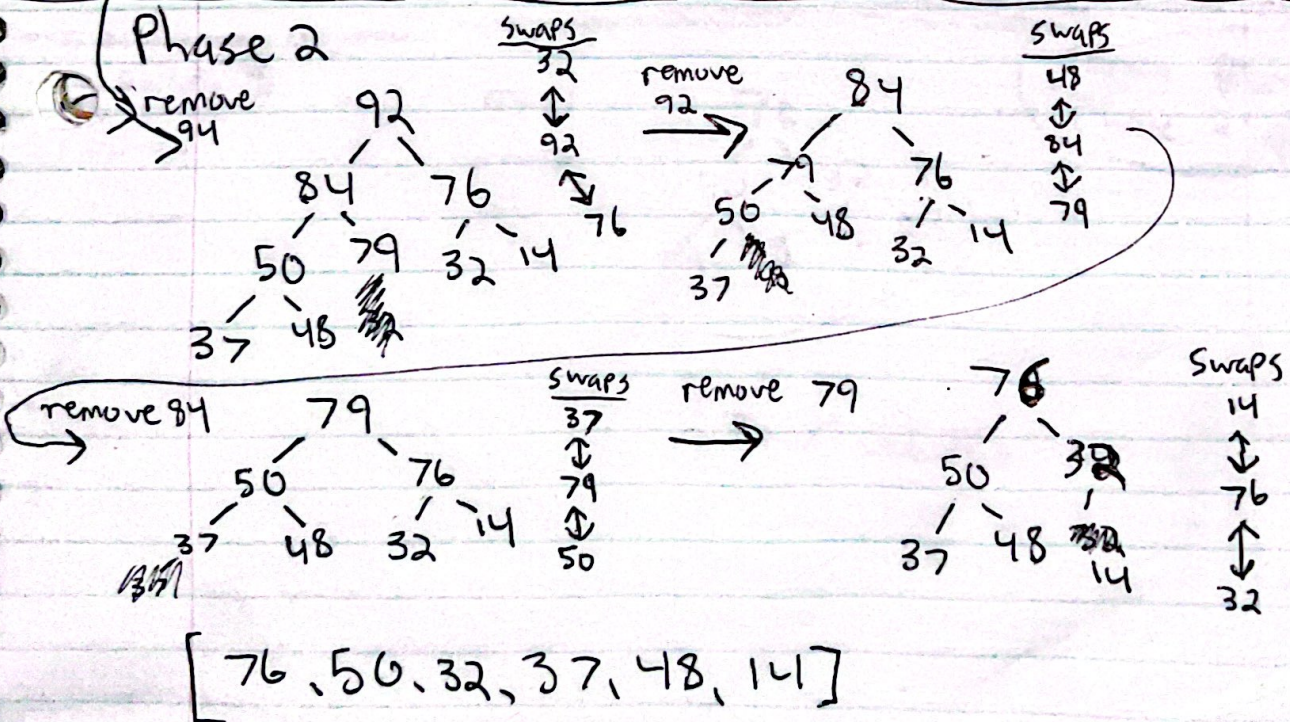 Phase 2
remove
94
92
84 76
50 79 32 14
37 48
swaps
32
↕
92
↕
76
remove
92
84
79 76
50 48 32 14
37
swaps
48
↕
84
↕
79
remove 84
79
50 76
37 48 32 14
swaps
37
↕
79
↕
50
remove 79
76
50 32
37 48 14
swaps
14
↕
76
↕
32
[76, 50, 32, 37, 48, 14]